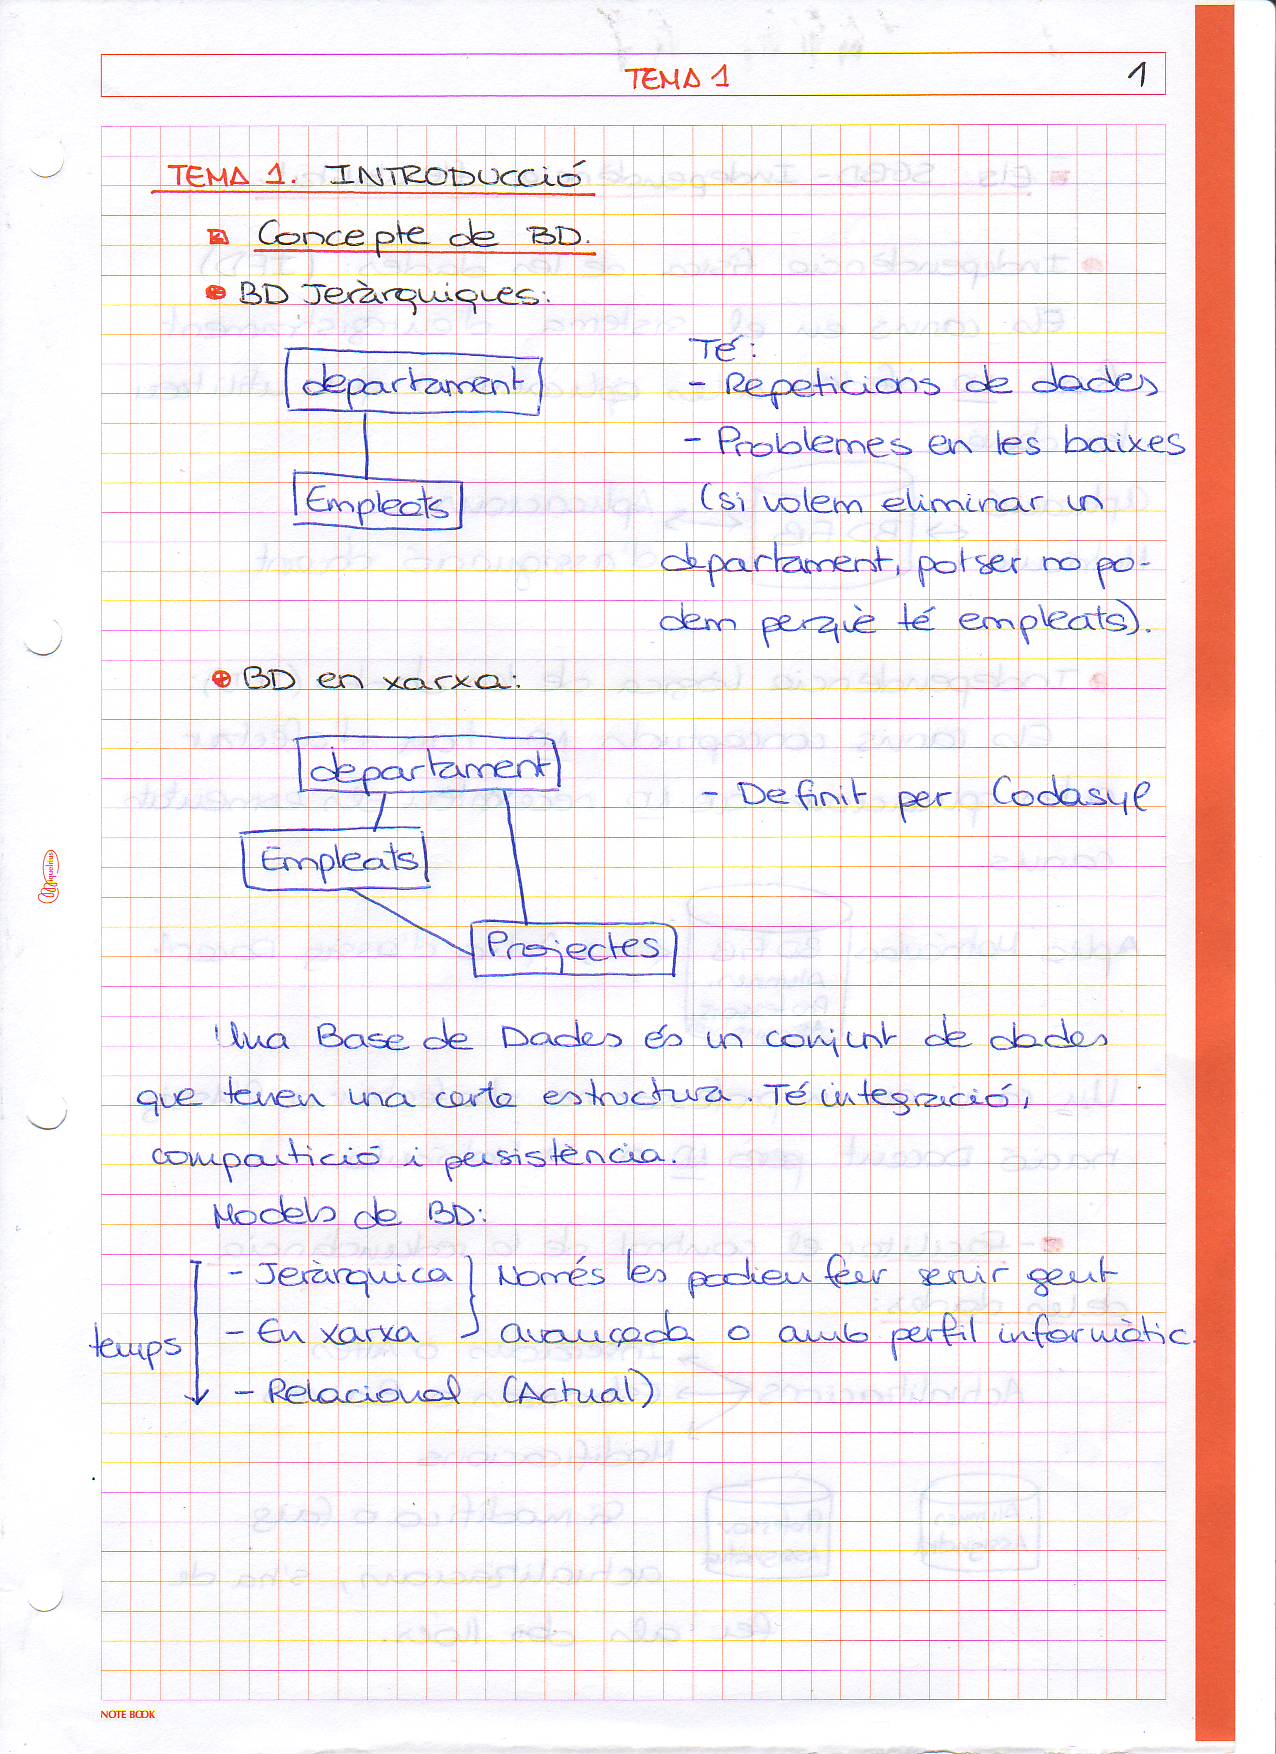 TEMA 1
1
TEMA 1. INTRODUCCIÓ
Concepte de BD.
BD Jeràrquiques:
departament
Empleats
Té:
- Repeticions de dades
- Problemes en les baixes
(si volem eliminar un
departament, potser no po-
dem perquè té empleats).
BD en xarxa:
departament
Empleats
Projectes
- Definit per Codasyl
Una Base de Dades és un conjunt de dades
que tenen una certa estructura. Té integració,
compartició i persistència.
Models de BD:
temps
- Jeràrquica
- En xarxa
Només les podien feer servir gent
avançada o amb perfil informàtic.
- Relacional (Actual)
Miquelrius
NOTE BOOK